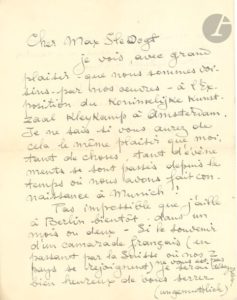 Cher Max Ste Vogt
je vois, avec grand
plaisir que nous sommes voi-
sins par nos oeuvres - à l'Ex-
position du Koninklijke Kunst-
zaal Kleykamp à Amsterdam.
Je ne sais si vous aurez de
cela le même plaisir que moi,
tant de choses, tant d'évène-
ments se sont passés depuis le
temps où nous avons fait con-
naissance à Munich !
Pas impossible que j'aille
à Berlin bientôt - dans un
mois ou deux - Si le souvenir
d'un camarade français (en
passant par la Suisse où nos 2
pays se rejoignent) ne vous est pas
je serais
bien heureux de vous serrer
(ungemütlich)